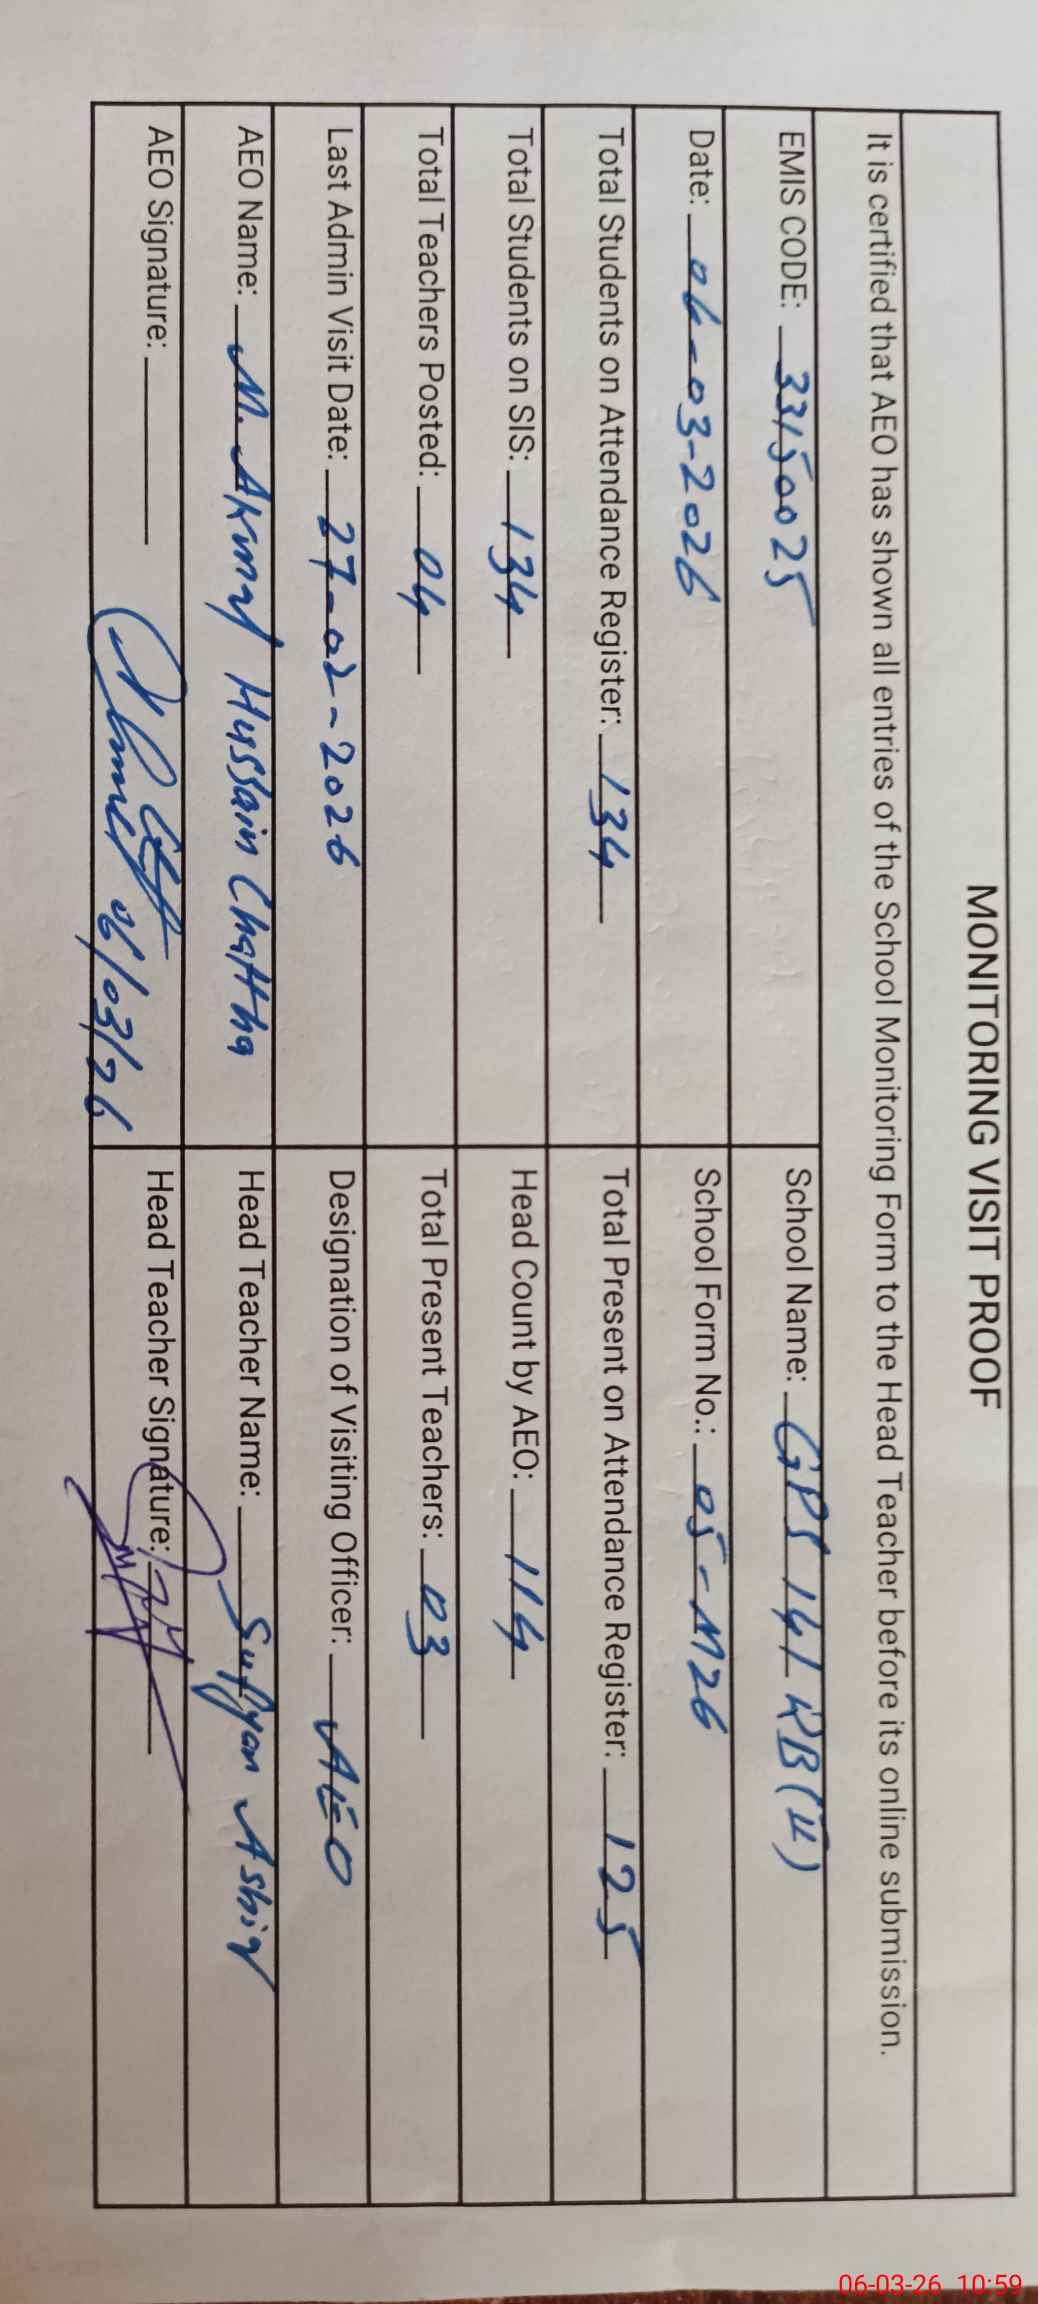 MONITORING VISIT PROOF
It is certified that AEO has shown all entries of the School Monitoring Form to the Head Teacher before its online submission.
EMIS CODE: 33150025 School Name: GPS 141 RB (II)
Date: 06-03-2026 School Form No.: 05-M26
Total Students on Attendance Register: 134 Total Present on Attendance Register: 125
Total Students on SIS: 134 Head Count by AEO: 114
Total Teachers Posted: 04 Total Present Teachers: 03
Last Admin Visit Date: 27-02-2026 Designation of Visiting Officer: AEO
AEO Name: M. Akmal Hussain Chattha Head Teacher Name: Sufyan
AEO Signature: 06/03/26 Head Teacher Signature:
06-03-26 10:59